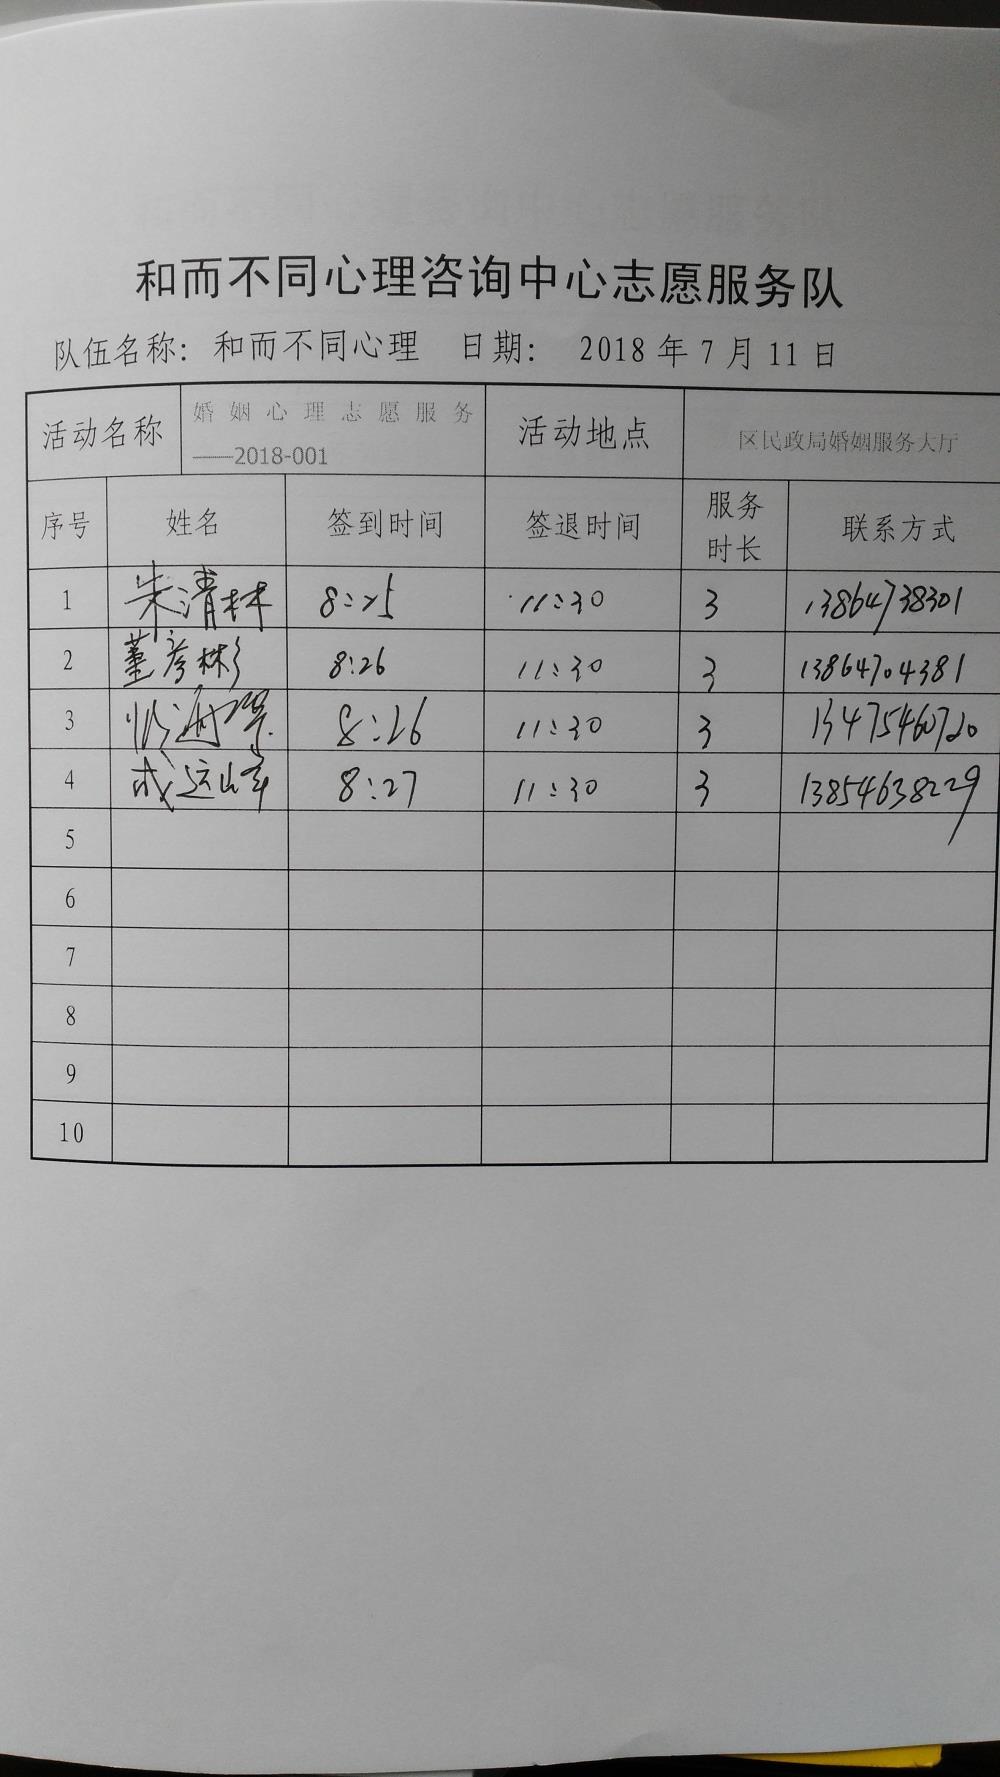 和而不同心理咨询中心志愿服务队
队伍名称：和而不同心理 日期： 2018 年 7 月 11 日
活动名称 婚姻心理志愿服务 活动地点 区民政局婚姻服务大厅
——2018-001
序号 姓名 签到时间 签退时间 服务时长 联系方式
1 朱清林 8:25 11:30 3 13864738301
2 董彦彬 8:26 11:30 3 13864704381
3 8:26 11:30 3 13475460720
4 成远峰 8:27 11:30 3 13854638229
5
6
7
8
9
10